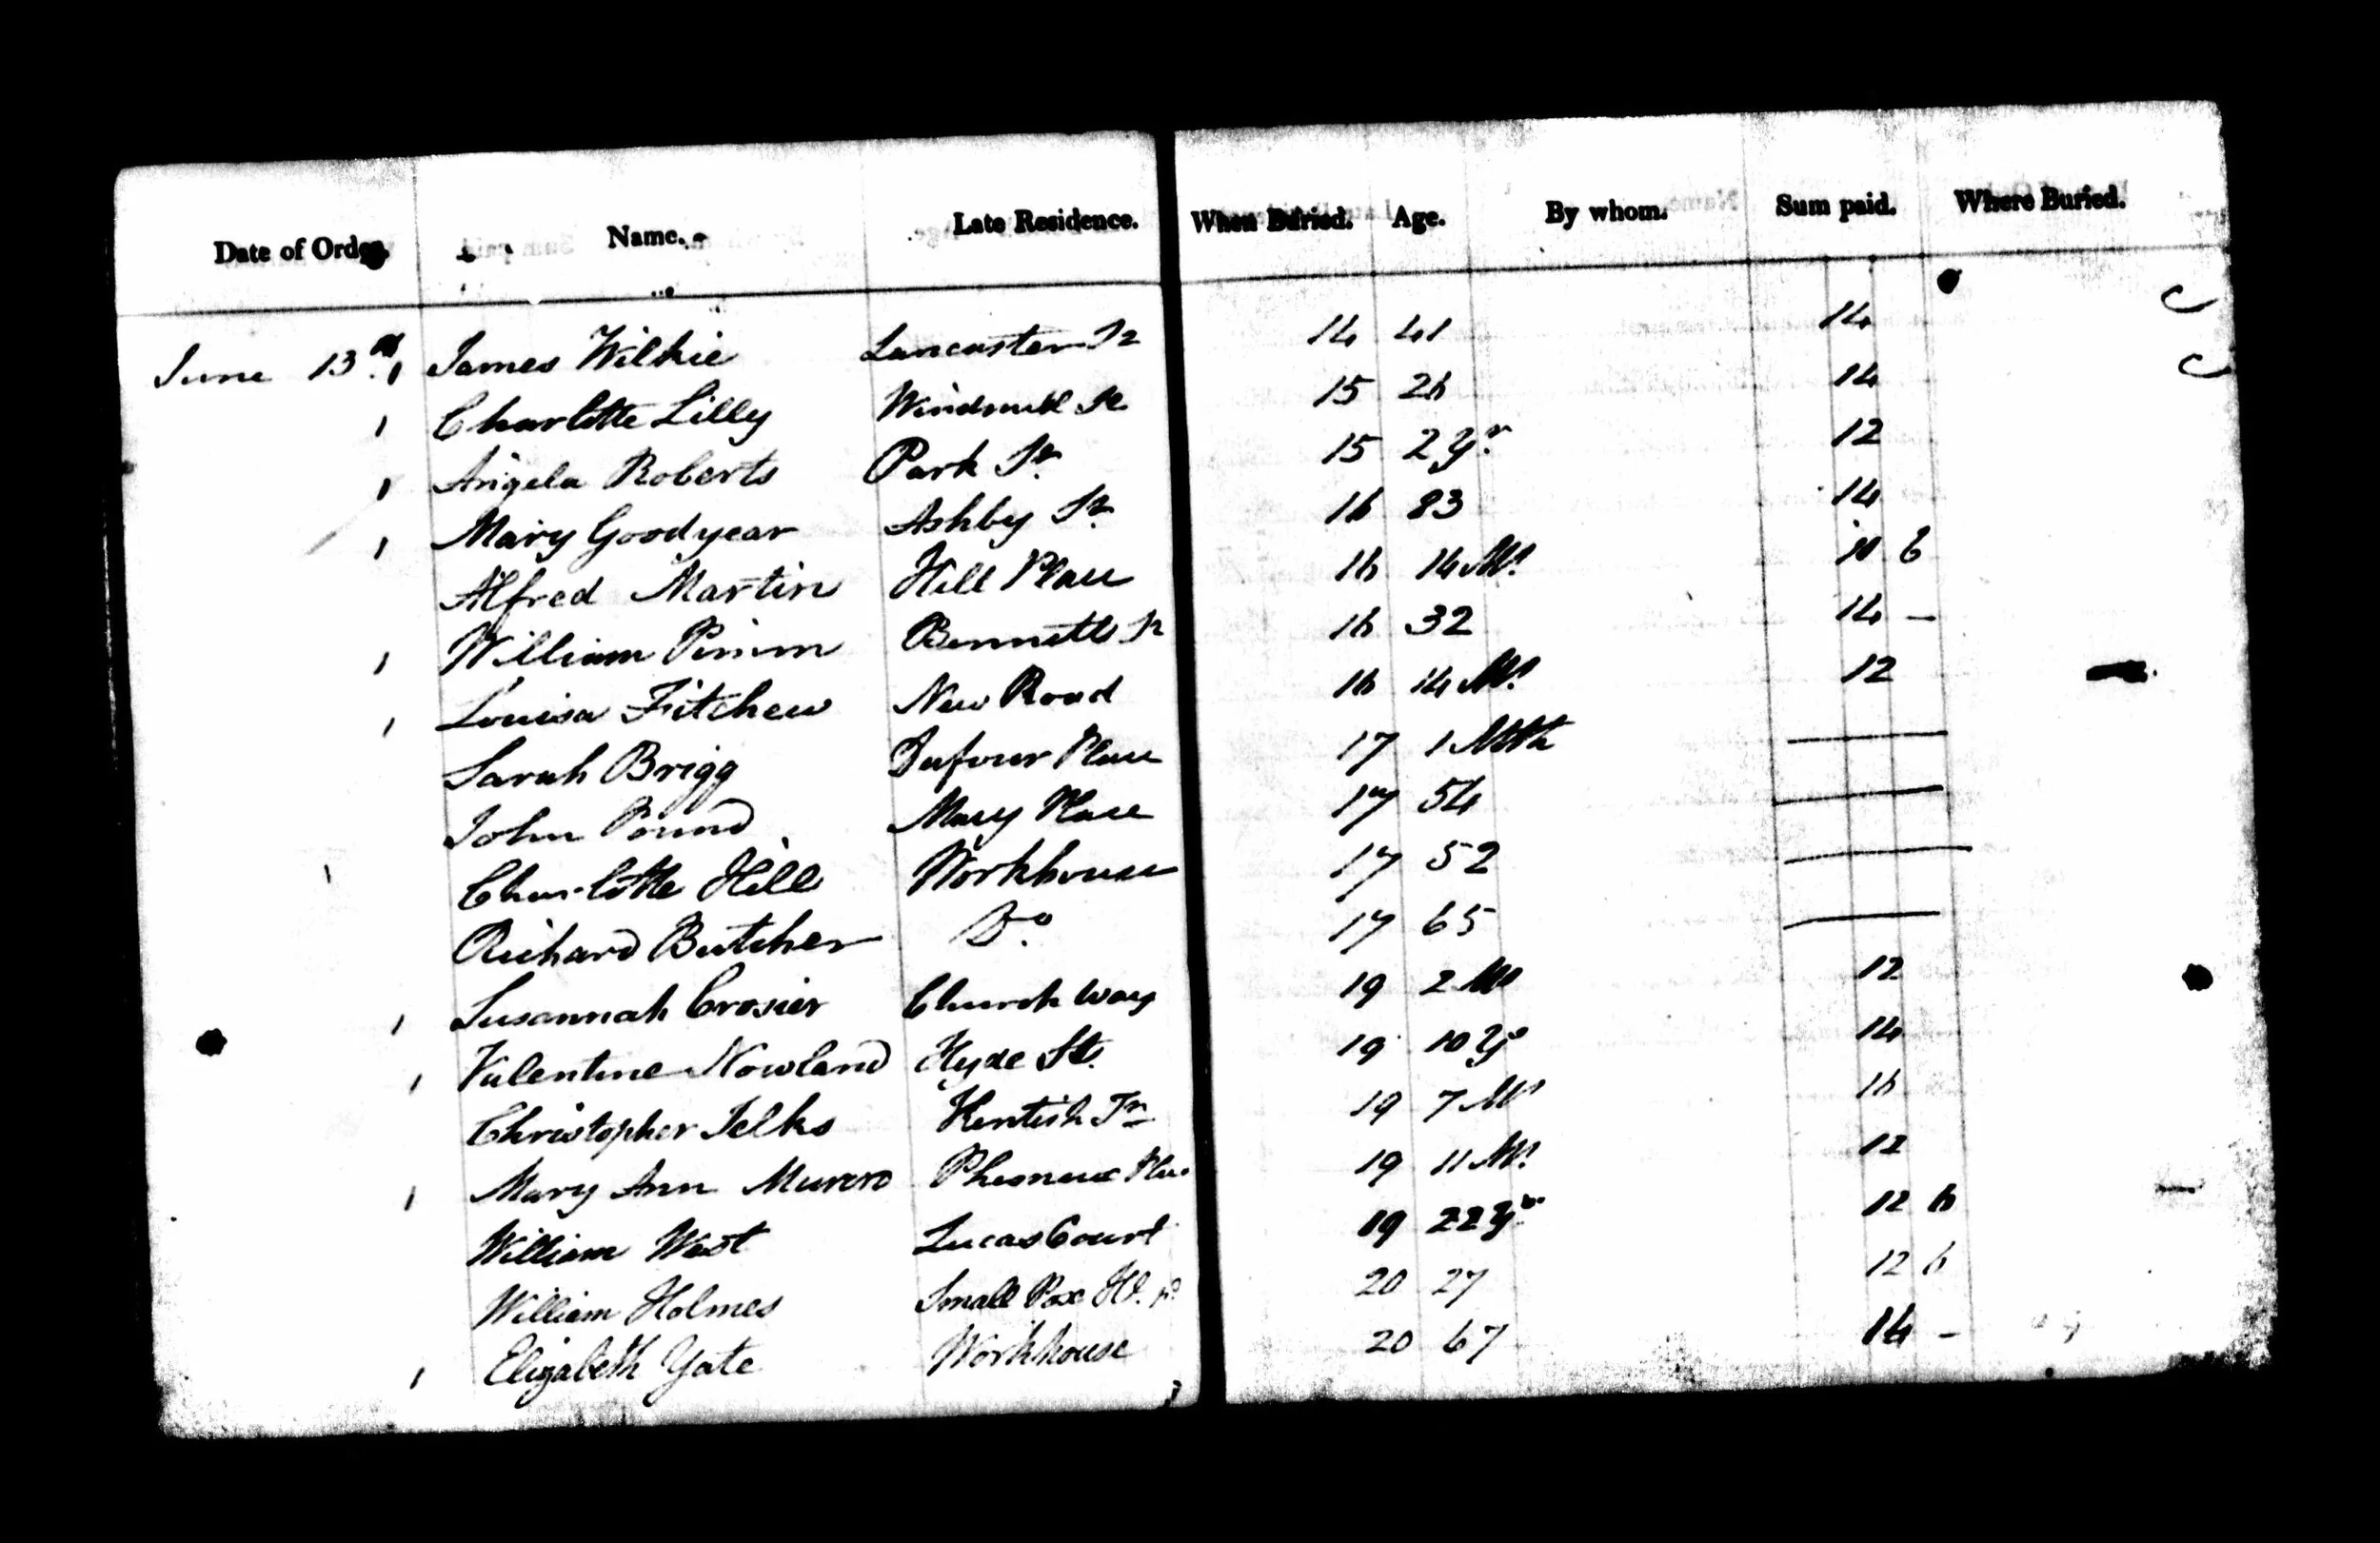 Date of Order. Name. Late Residence. When Buried. Age. By whom. Sum paid. Where Buried.
June 13 James Wilkie Lancaster St 14 41 14
Charlotte Lilly Windmill St 15 26 14
Angela Roberts Park St. 15 2 Yr. 12
Mary Goodyear Ashby St. 16 83 14
Alfred Martin Hill Place 16 14 Ms. 10 6
William Pimm Bennetts St 16 32 14 –
Louisa Fitchew New Road 16 14 Ms. 12
Sarah Brigg Dufour Place 17 1 Mth
John Pound Mary Place 17 54
Charlotte Hill Workhouse 17 52
Richard Butcher Do. 17 65
Susannah Crosier Church Way 19 2 Ms 12
Valentine Nowland Hyde St. 19 10 Ys 14
Christopher Jelks Kentish Tn 19 7 Ms 16
Mary Ann Munro Place 19 11 Ms. 12
William West Lucas Court 19 22 Yrs. 12 6
William Holmes Small Pox 20 27 12 6
Elizabeth Yate Workhouse 20 67 14 –